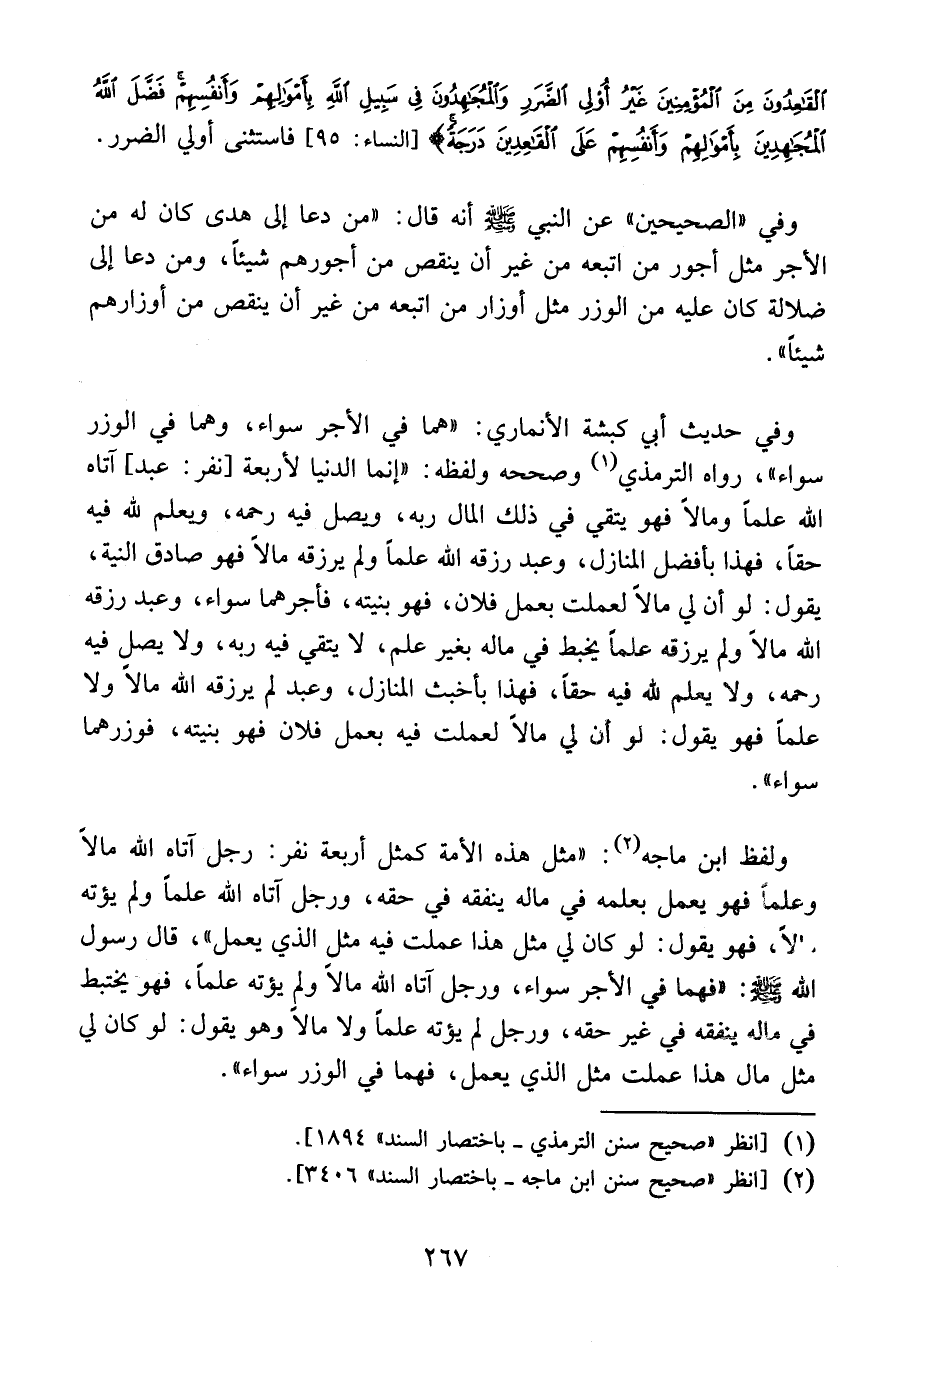 ٱلْقَٰعِدُونَ مِنَ ٱلْمُؤْمِنِينَ غَيْرُ أُو۟لِى ٱلضَّرَرِ وَٱلْمُجَٰهِدُونَ فِى سَبِيلِ ٱللَّهِ بِأَمْوَٰلِهِمْ وَأَنفُسِهِمْ ۚ فَضَّلَ ٱللَّهُ
ٱلْمُجَٰهِدِينَ بِأَمْوَٰلِهِمْ وَأَنفُسِهِمْ عَلَى ٱلْقَٰعِدِينَ دَرَجَةً ۚ﴾ [النساء: ٩٥] فاستثنى أولي الضرر.
وفي «الصحيحين» عن النبي ﷺ أنه قال: «من دعا إلى هدى كان له من
الأجر مثل أجور من اتبعه من غير أن ينقص من أجورهم شيئاً، ومن دعا إلى
ضلالة كان عليه من الوزر مثل أوزار من اتبعه من غير أن ينقص من أوزارهم
شيئاً».
وفي حديث أبي كبشة الأنماري: «هما في الأجر سواء، وهما في الوزر
سواء»، رواه الترمذي(١) وصححه ولفظه: «إنما الدنيا لأربعة [نفر: عبد] آتاه
الله علماً ومالاً فهو يتقي في ذلك المال ربه، ويصل فيه رحمه، ويعلم لله فيه
حقاً، فهذا بأفضل المنازل، وعبد رزقه الله علماً ولم يرزقه مالاً فهو صادق النية،
يقول: لو أن لي مالاً لعملت بعمل فلان، فهو بنيته، فأجرهما سواء، وعبد رزقه
الله مالاً ولم يرزقه علماً يخبط في ماله بغير علم، لا يتقي فيه ربه، ولا يصل فيه
رحمه، ولا يعلم لله فيه حقاً، فهذا بأخبث المنازل، وعبد لم يرزقه الله مالاً ولا
علماً فهو يقول: لو أن لي مالاً لعملت فيه بعمل فلان فهو بنيته، فوزرهما
سواء».
ولفظ ابن ماجه(٢): «مثل هذه الأمة كمثل أربعة نفر: رجل آتاه الله مالاً
وعلماً فهو يعمل بعلمه في ماله ينفقه في حقه، ورجل آتاه الله علماً ولم يؤته
فهو يقول: لو كان لي مثل هذا عملت فيه مثل الذي يعمل»، قال رسول
الله ﷺ: «فهما في الأجر سواء، ورجل آتاه الله مالاً ولم يؤته علماً، فهو يختبط
في ماله ينفقه في غير حقه، ورجل لم يؤته علماً ولا مالاً وهو يقول: لو كان لي
مثل مال هذا عملت مثل الذي يعمل، فهما في الوزر سواء».
(١) [انظر «صحيح سنن الترمذي ـ باختصار السند» ١٨٩٤].
(٢) [انظر «صحيح سنن ابن ماجه ـ باختصار السند» ٣٤٠٦].
٢٦٧